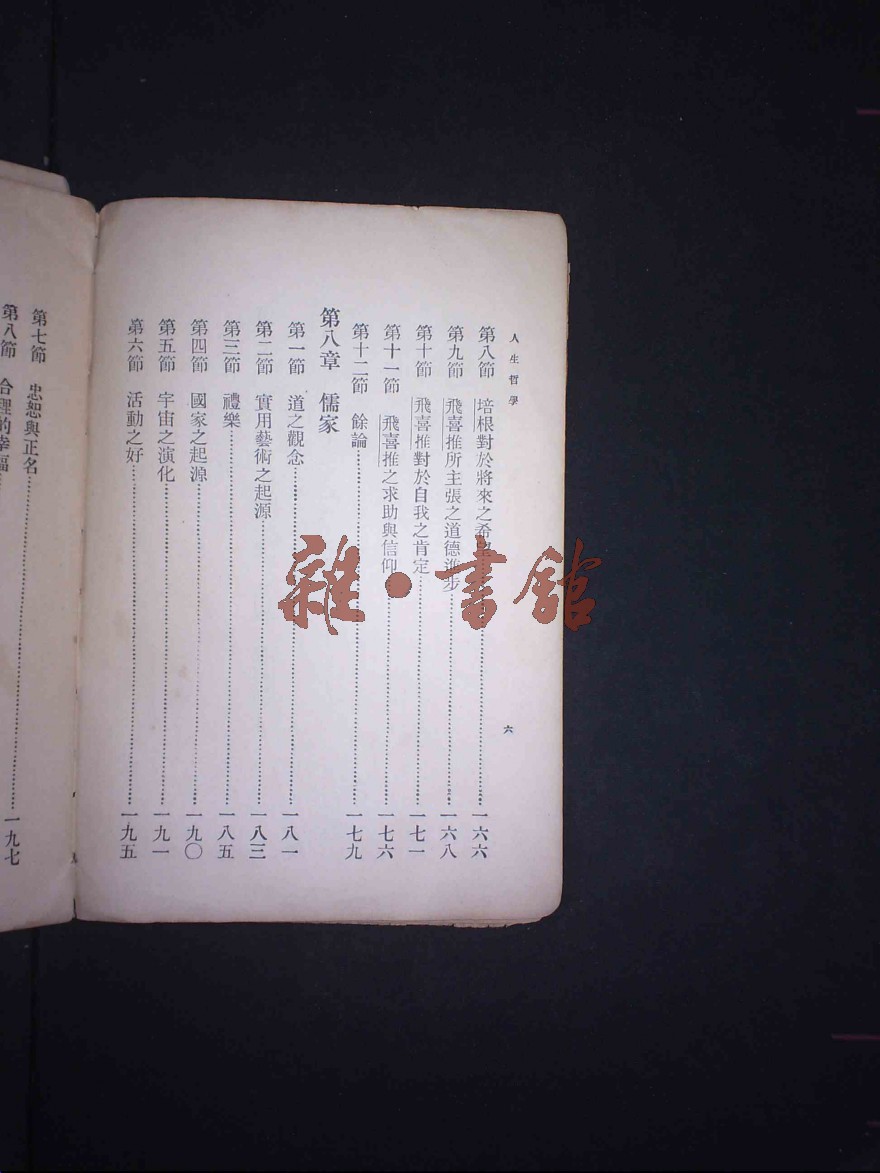 人生哲學
六
第八節 培根對於將來之希望……一六六
第九節 飛喜推所主張之道德進步……一六八
第十節 飛喜推對於自我之肯定……一七一
第十一節 飛喜推之求助與信仰……一七六
第十二節 餘論……一七九
第八章 儒家
第一節 道之觀念……一八一
第二節 實用藝術之起源……一八三
第三節 禮樂……一八五
第四節 國家之起源……一九〇
第五節 宇宙之演化……一九一
第六節 活動之好……一九五
第七節 忠恕與正名……一九七
第八節 合理的幸福……
雜·書館